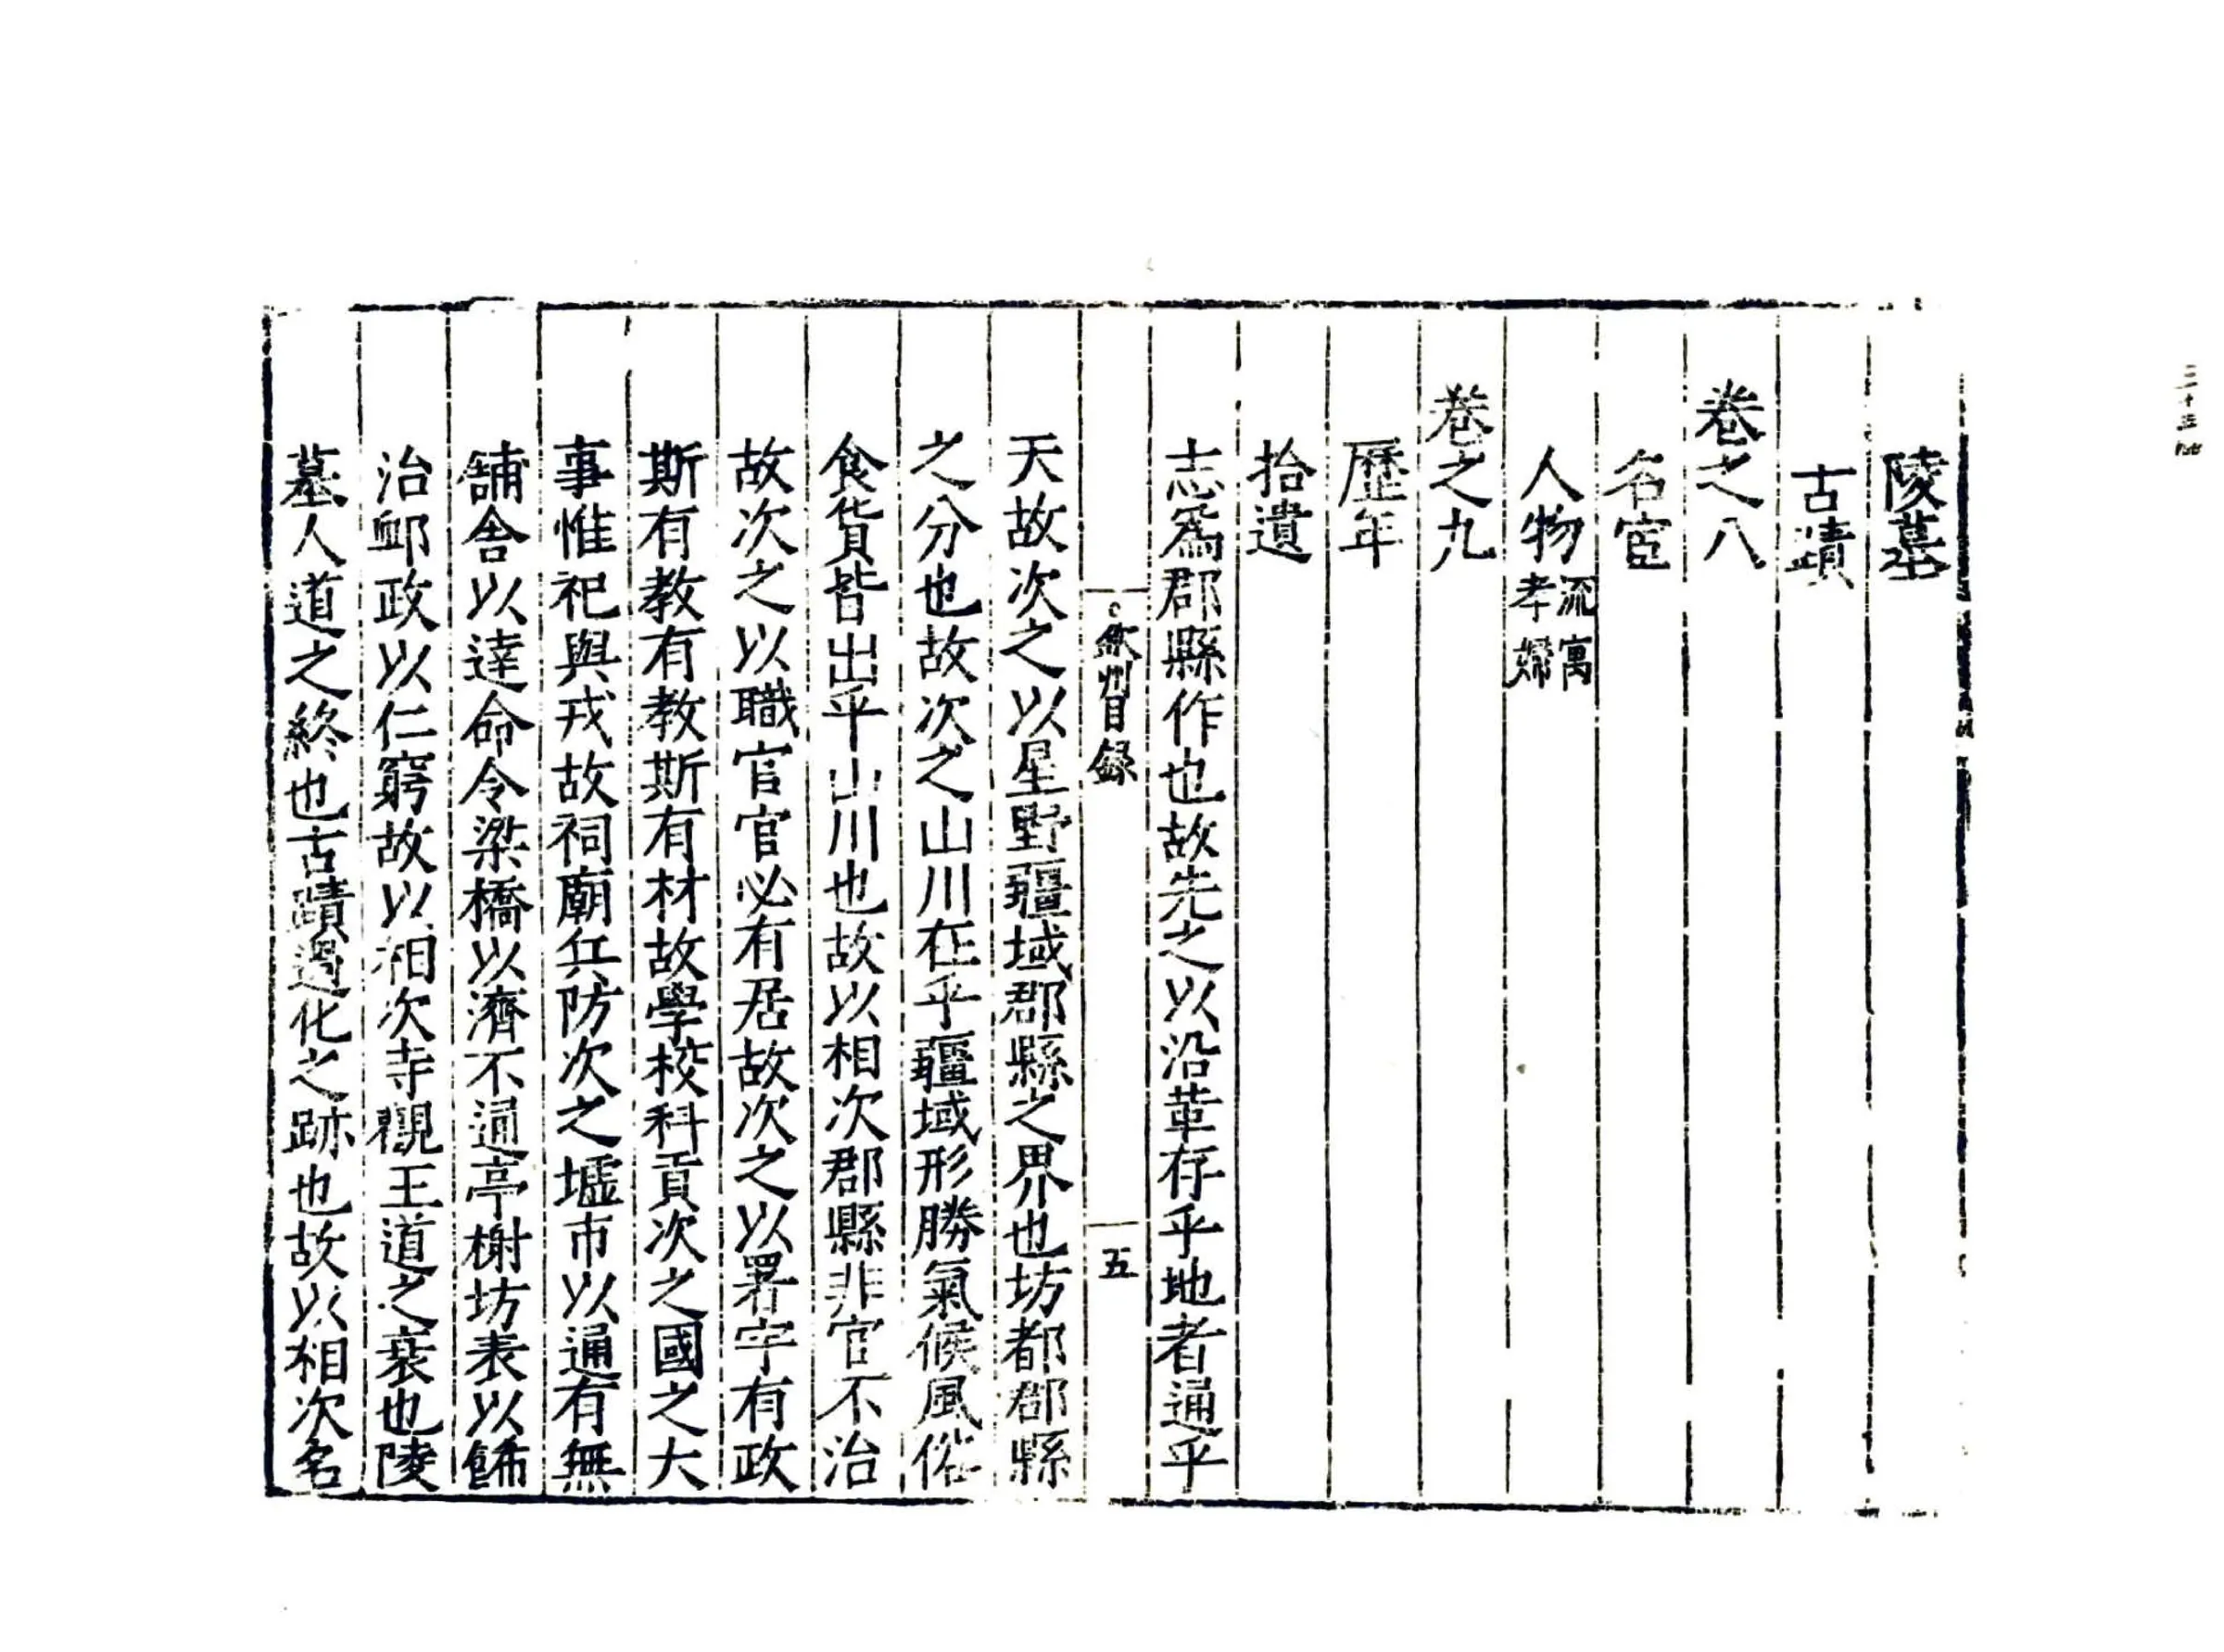 陵墓
古蹟
卷之八
名宦
人物 流寓 孝婦
卷之九
歷年
拾遺
志爲郡縣作也故先之以沿革存乎地者通乎
欽州目錄 五
天故次之以星野疆域郡縣之界也坊都郡縣
之分也故次之山川在乎疆域形勝氣候風俗
食貨皆出乎山川也故以相次郡縣非官不治
故次之以職官官必有居故次之以署宇有政
斯有教有教斯有材故學校科貢次之國之大
事惟祀與戎故祠廟兵防次之墟市以通有無
舖舍以達命令梁橋以濟不通亭榭坊表以餙
治卹政以仁窮故以相次寺觀王道之衰也陵
墓人道之終也古蹟過化之跡也故以相次名